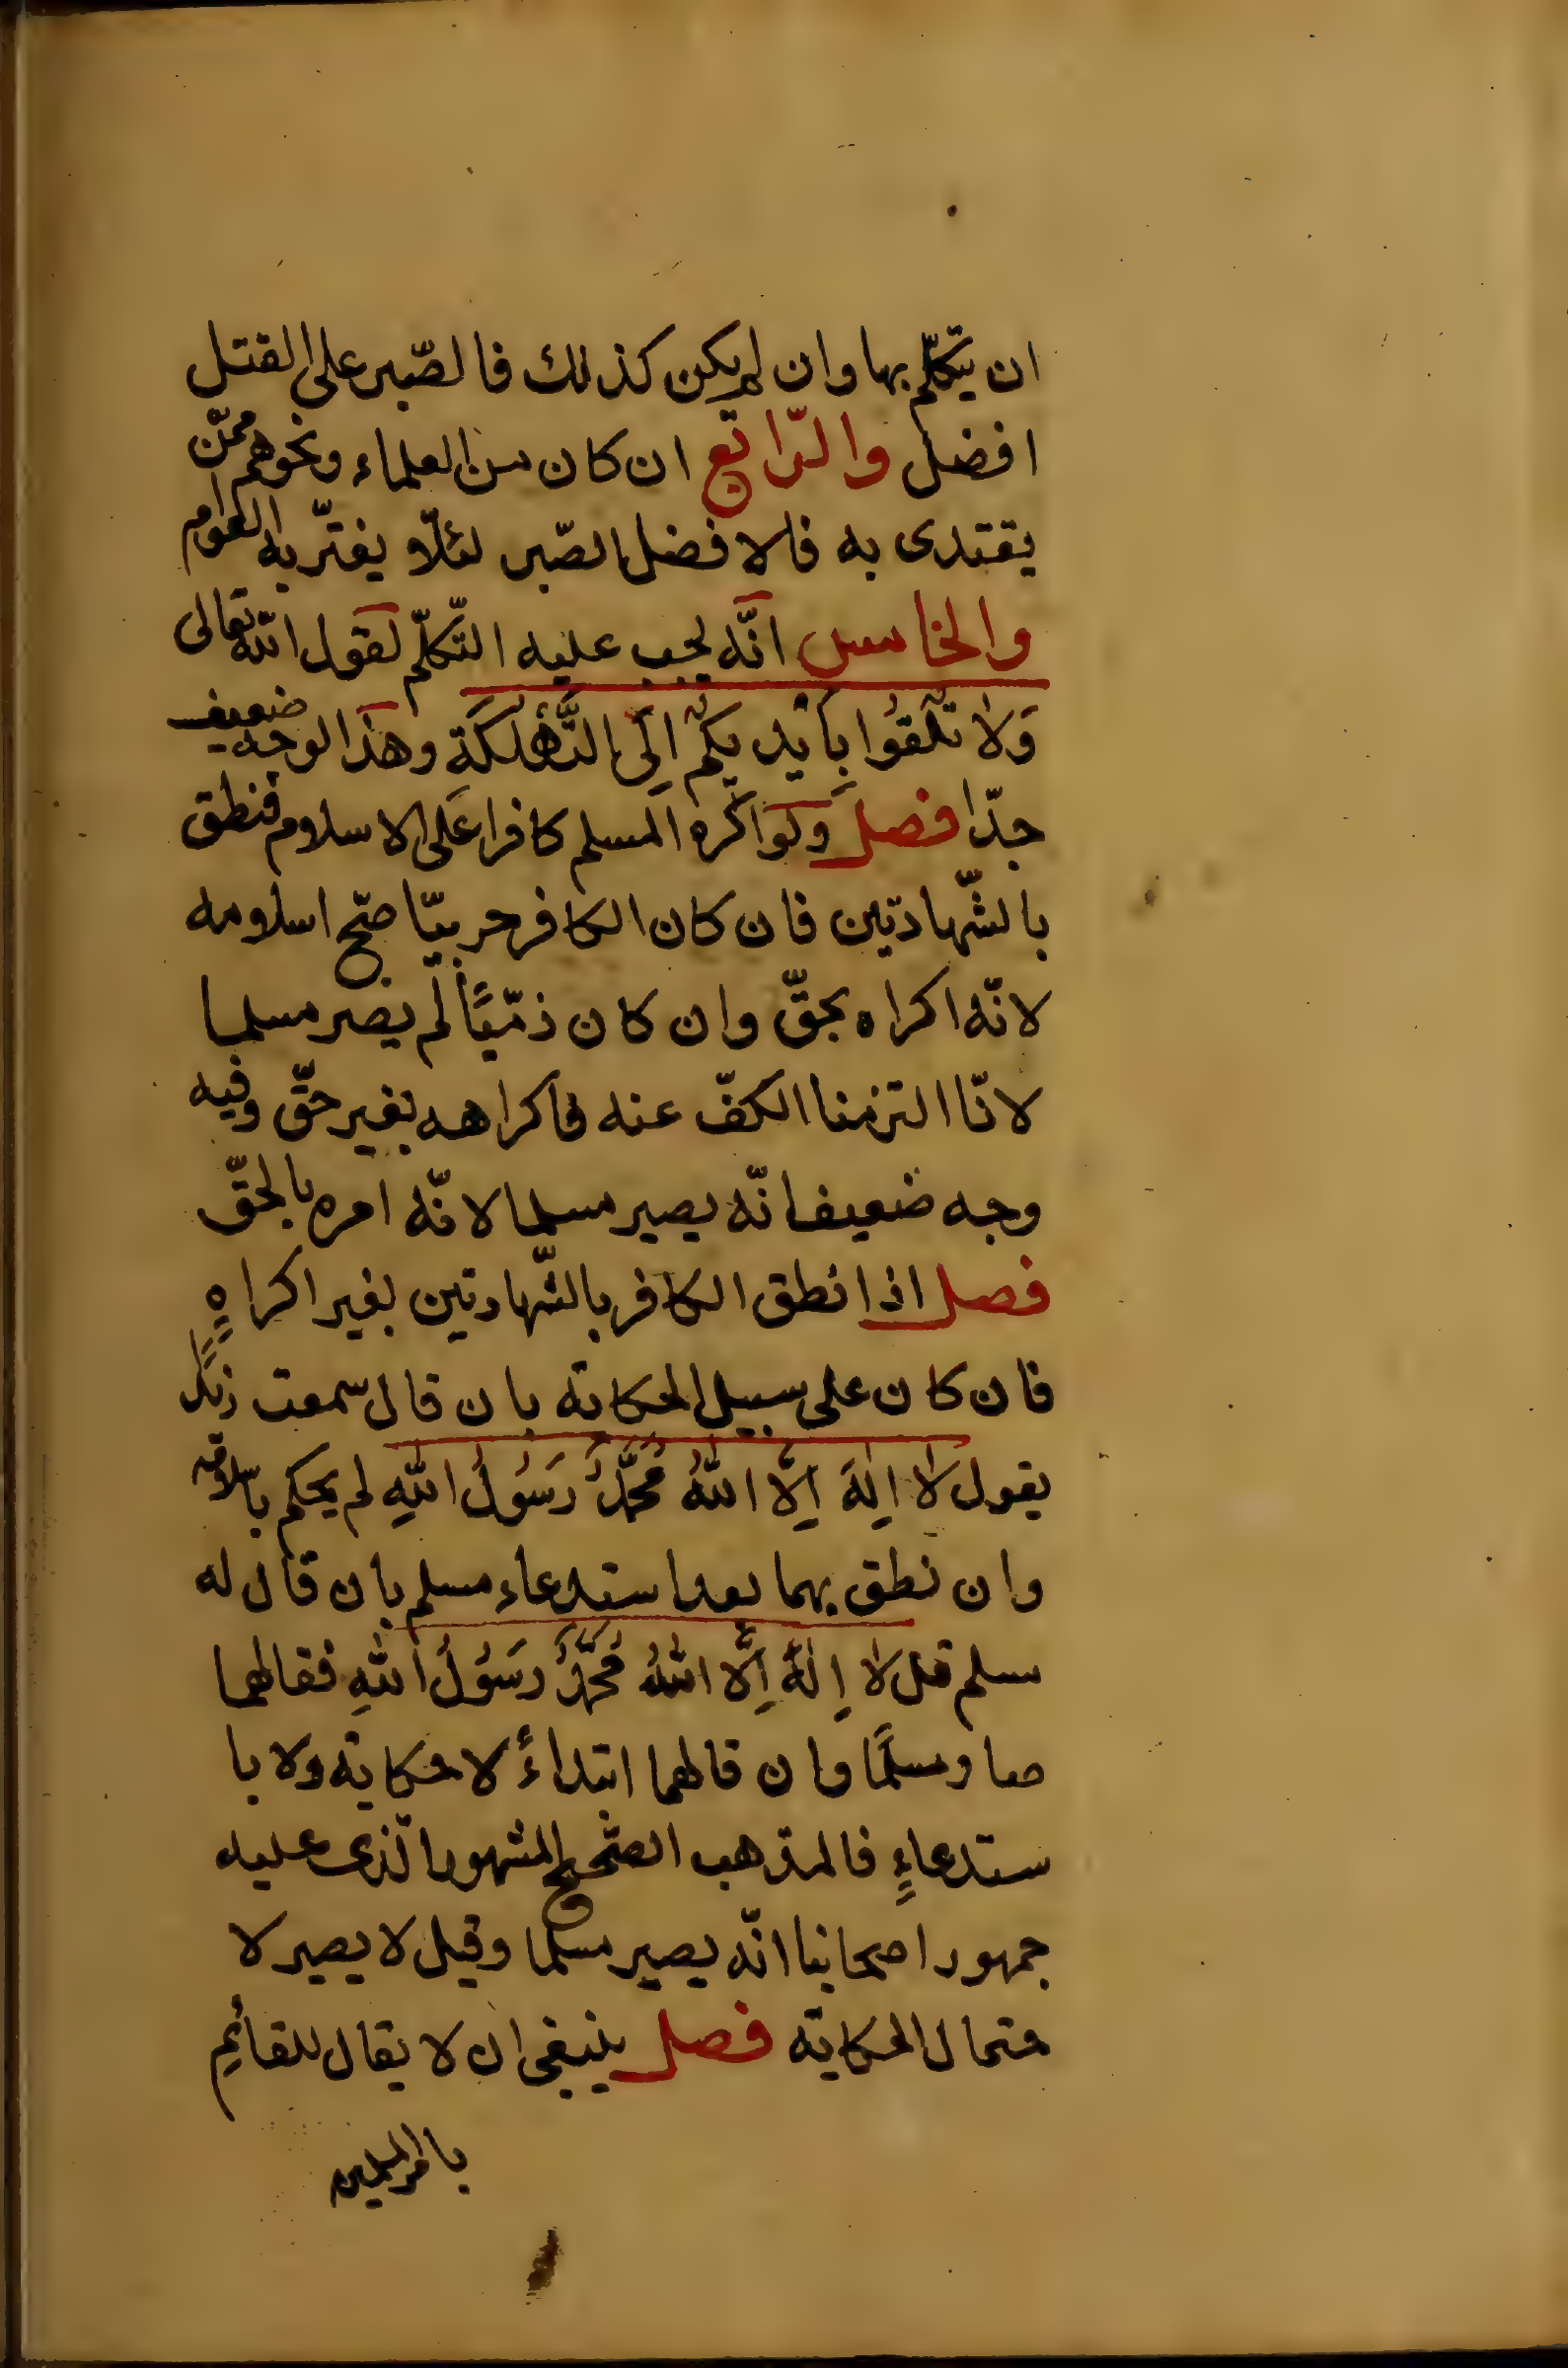 ان يتكلّم بها وان لم يكن كذلك فالصّبر على القتل
افضل والرّابع ان كان من العلماء ونحوهم ممّن
يقتدى به فالافضل الصّبر لئلّا يغترّ به العوام
والخامس انّه يجب عليه التّكلّم لقول الله تعالى
وَلَا تُلْقُوا بِأَيْدِيكُمْ اِلَى التَّهْلُكَةِ وهذا الوجه ضعيف
جدّا فصل ولو اكره المسلم كافرا على الاسلام فنطق
بالشّهادتين فان كان الكافر حربيّا صحّ اسلامه
لانّه اكراه بحقّ وان كان ذمّيّاً لم يصر مسلما
لانّا التزمنا الكفّ عنه فاكراهه بغير حقّ وفيه
وجه ضعيف انّه يصير مسلما لانّه امره بالحقّ
فصل اذا نطق الكافر بالشّهادتين بغير اكراهٍ
فان كان على سبيل الحكاية بان قال سمعت زيدًا
يقول لَا اِلهَ اِلَّا اللهُ مُحَمَّدٌ رَسُولُ اللهِ لم يحكم باسلامه
وان نطق بهما بعد استدعاء مسلم بان قال له
مسلم قل لَا اِلهَ اِلَّا اللهُ مُحَمَّدٌ رَسُولُ اللهِ فقالهما
صار مسلمًا وان قالهما ابتداءً لا حكاية ولا با
ستدعاءٍ فالمذهب الصّحيح المشهور الّذى عليه
جمهور اصحابنا انّه يصير مسلما وقيل لا يصير لا
حتمال الحكاية فصل ينبغى ان لا يقال للقائم
بامر المسلمين